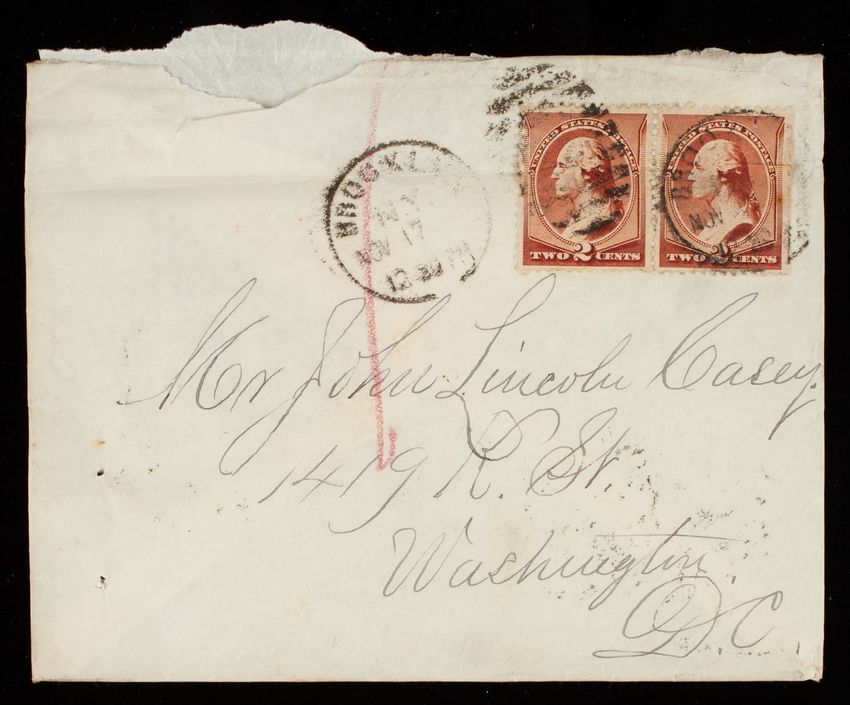 BROOKLYN
N.Y.
NOV 17
12-30 PM
UNITED STATES POSTAGE
2
TWO CENTS
UNITED STATES POSTAGE
2
TWO CENTS
NOV
Mr John Lincoln Casey.
1419 K. St.
Washington
D.C.